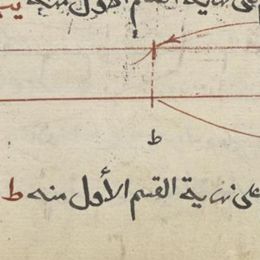 على نهاية القسم الأول منه يب
ط
على نهاية القسم الأول منه ط